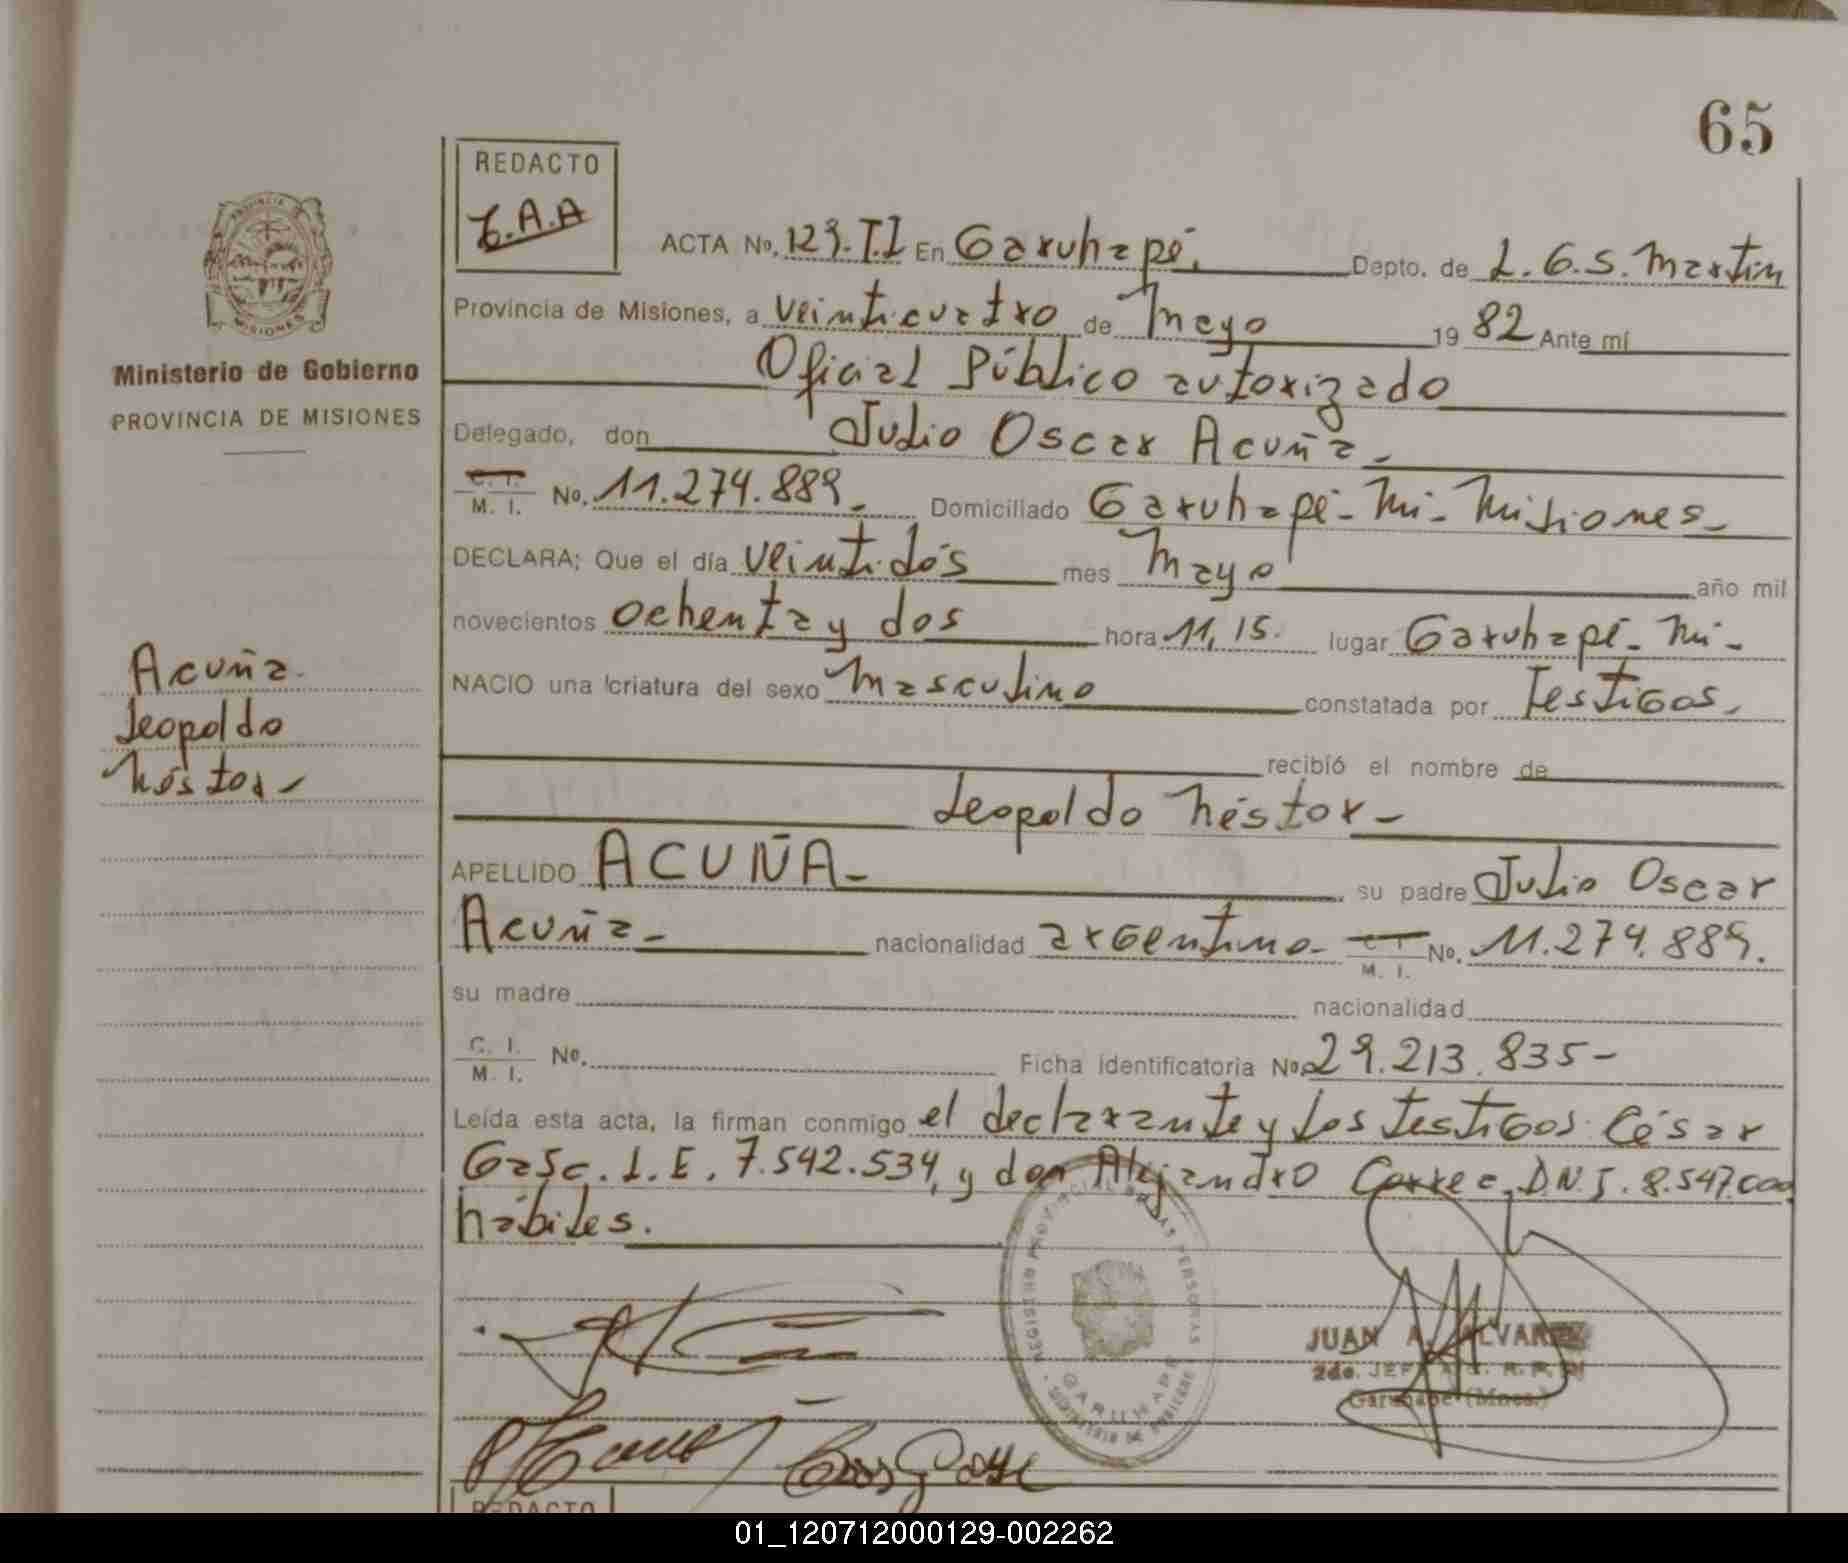 65
REDACTO
J.A.A
ACTA No. 129. T.I En Garuhapé, Depto. de L. G. S. Martin
PROVINCIA DE MISIONES
Provincia de Misiones, a veinticuatro de Mayo 19 82 Ante mí
Ministerio de Gobierno
PROVINCIA DE MISIONES
Oficial Público autorizado
Delegado, don Julio Oscar Acuña -
C. I.
M. I. No. 11.274.889 - Domiciliado Garuhapé - Mi - Misiones -
DECLARA; Que el día veintidós mes Mayo año mil
novecientos ochenta y dos hora 11,15. lugar Garuhapé - Mi -
NACIO una criatura del sexo Masculino constatada por Testigos.
recibió el nombre de
Leopoldo Néstor -
Acuña.
Leopoldo
Néstor -
APELLIDO ACUÑA - su padre Julio Oscar
Acuña - nacionalidad argentino - C I
M. I. No. 11.274.889.
su madre nacionalidad
C. I.
M. I. No. Ficha identificatoria No 29.213.835 -
Leída esta acta, la firman conmigo el declarante y los testigos: César
L.E. 7.542.534, y don Alejandro Correa, D.N.I. 8.547.000
hábiles.
REGISTRO PROVINCIAL DE LAS PERSONAS
GARUHAPE
MINISTERIO DE GOBIERNO
JUAN A. ALVAREZ
2do. JEFE
Garuhape (Mnes.)
REDACTO
01_120712000129-002262